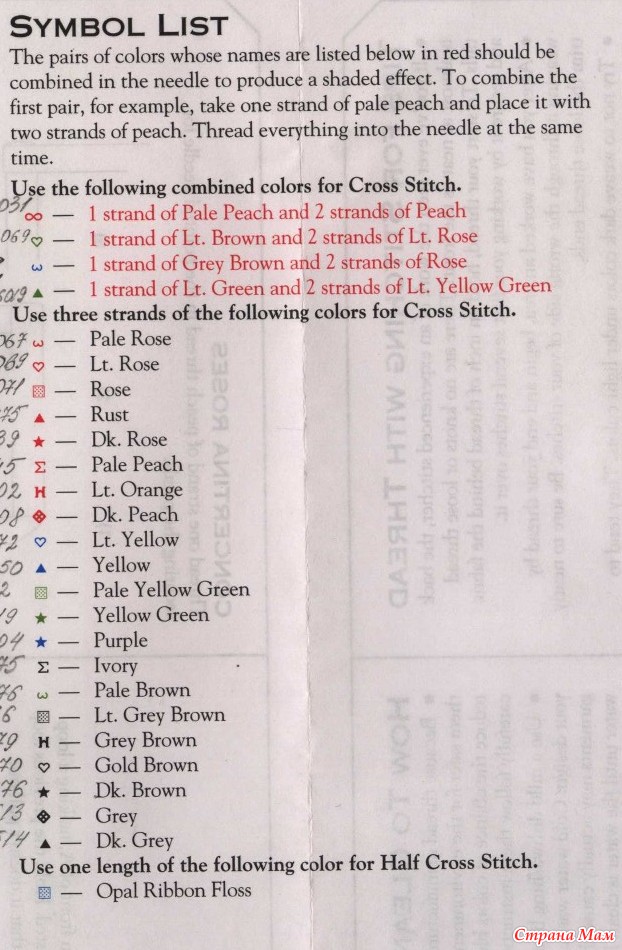 SYMBOL LIST
The pairs of colors whose names are listed below in red should be
combined in the needle to produce a shaded effect. To combine the
first pair, for example, take one strand of pale peach and place it with
two strands of peach. Thread everything into the needle at the same
time.
Use the following combined colors for Cross Stitch.
— 1 strand of Pale Peach and 2 strands of Peach
069 — 1 strand of Lt. Brown and 2 strands of Lt. Rose
— 1 strand of Grey Brown and 2 strands of Rose
— 1 strand of Lt. Green and 2 strands of Lt. Yellow Green
Use three strands of the following colors for Cross Stitch.
067 — Pale Rose
069 — Lt. Rose
071 — Rose
75 — Rust
39 — Dk. Rose
15 — Pale Peach
02 H — Lt. Orange
08 — Dk. Peach
72 — Lt. Yellow
50 — Yellow
2 — Pale Yellow Green
19 — Yellow Green
04 — Purple
75 Σ — Ivory
76 — Pale Brown
6 — Lt. Grey Brown
79 H — Grey Brown
70 — Gold Brown
76 — Dk. Brown
513 — Grey
514 — Dk. Grey
Use one length of the following color for Half Cross Stitch.
— Opal Ribbon Floss
Страна Мам